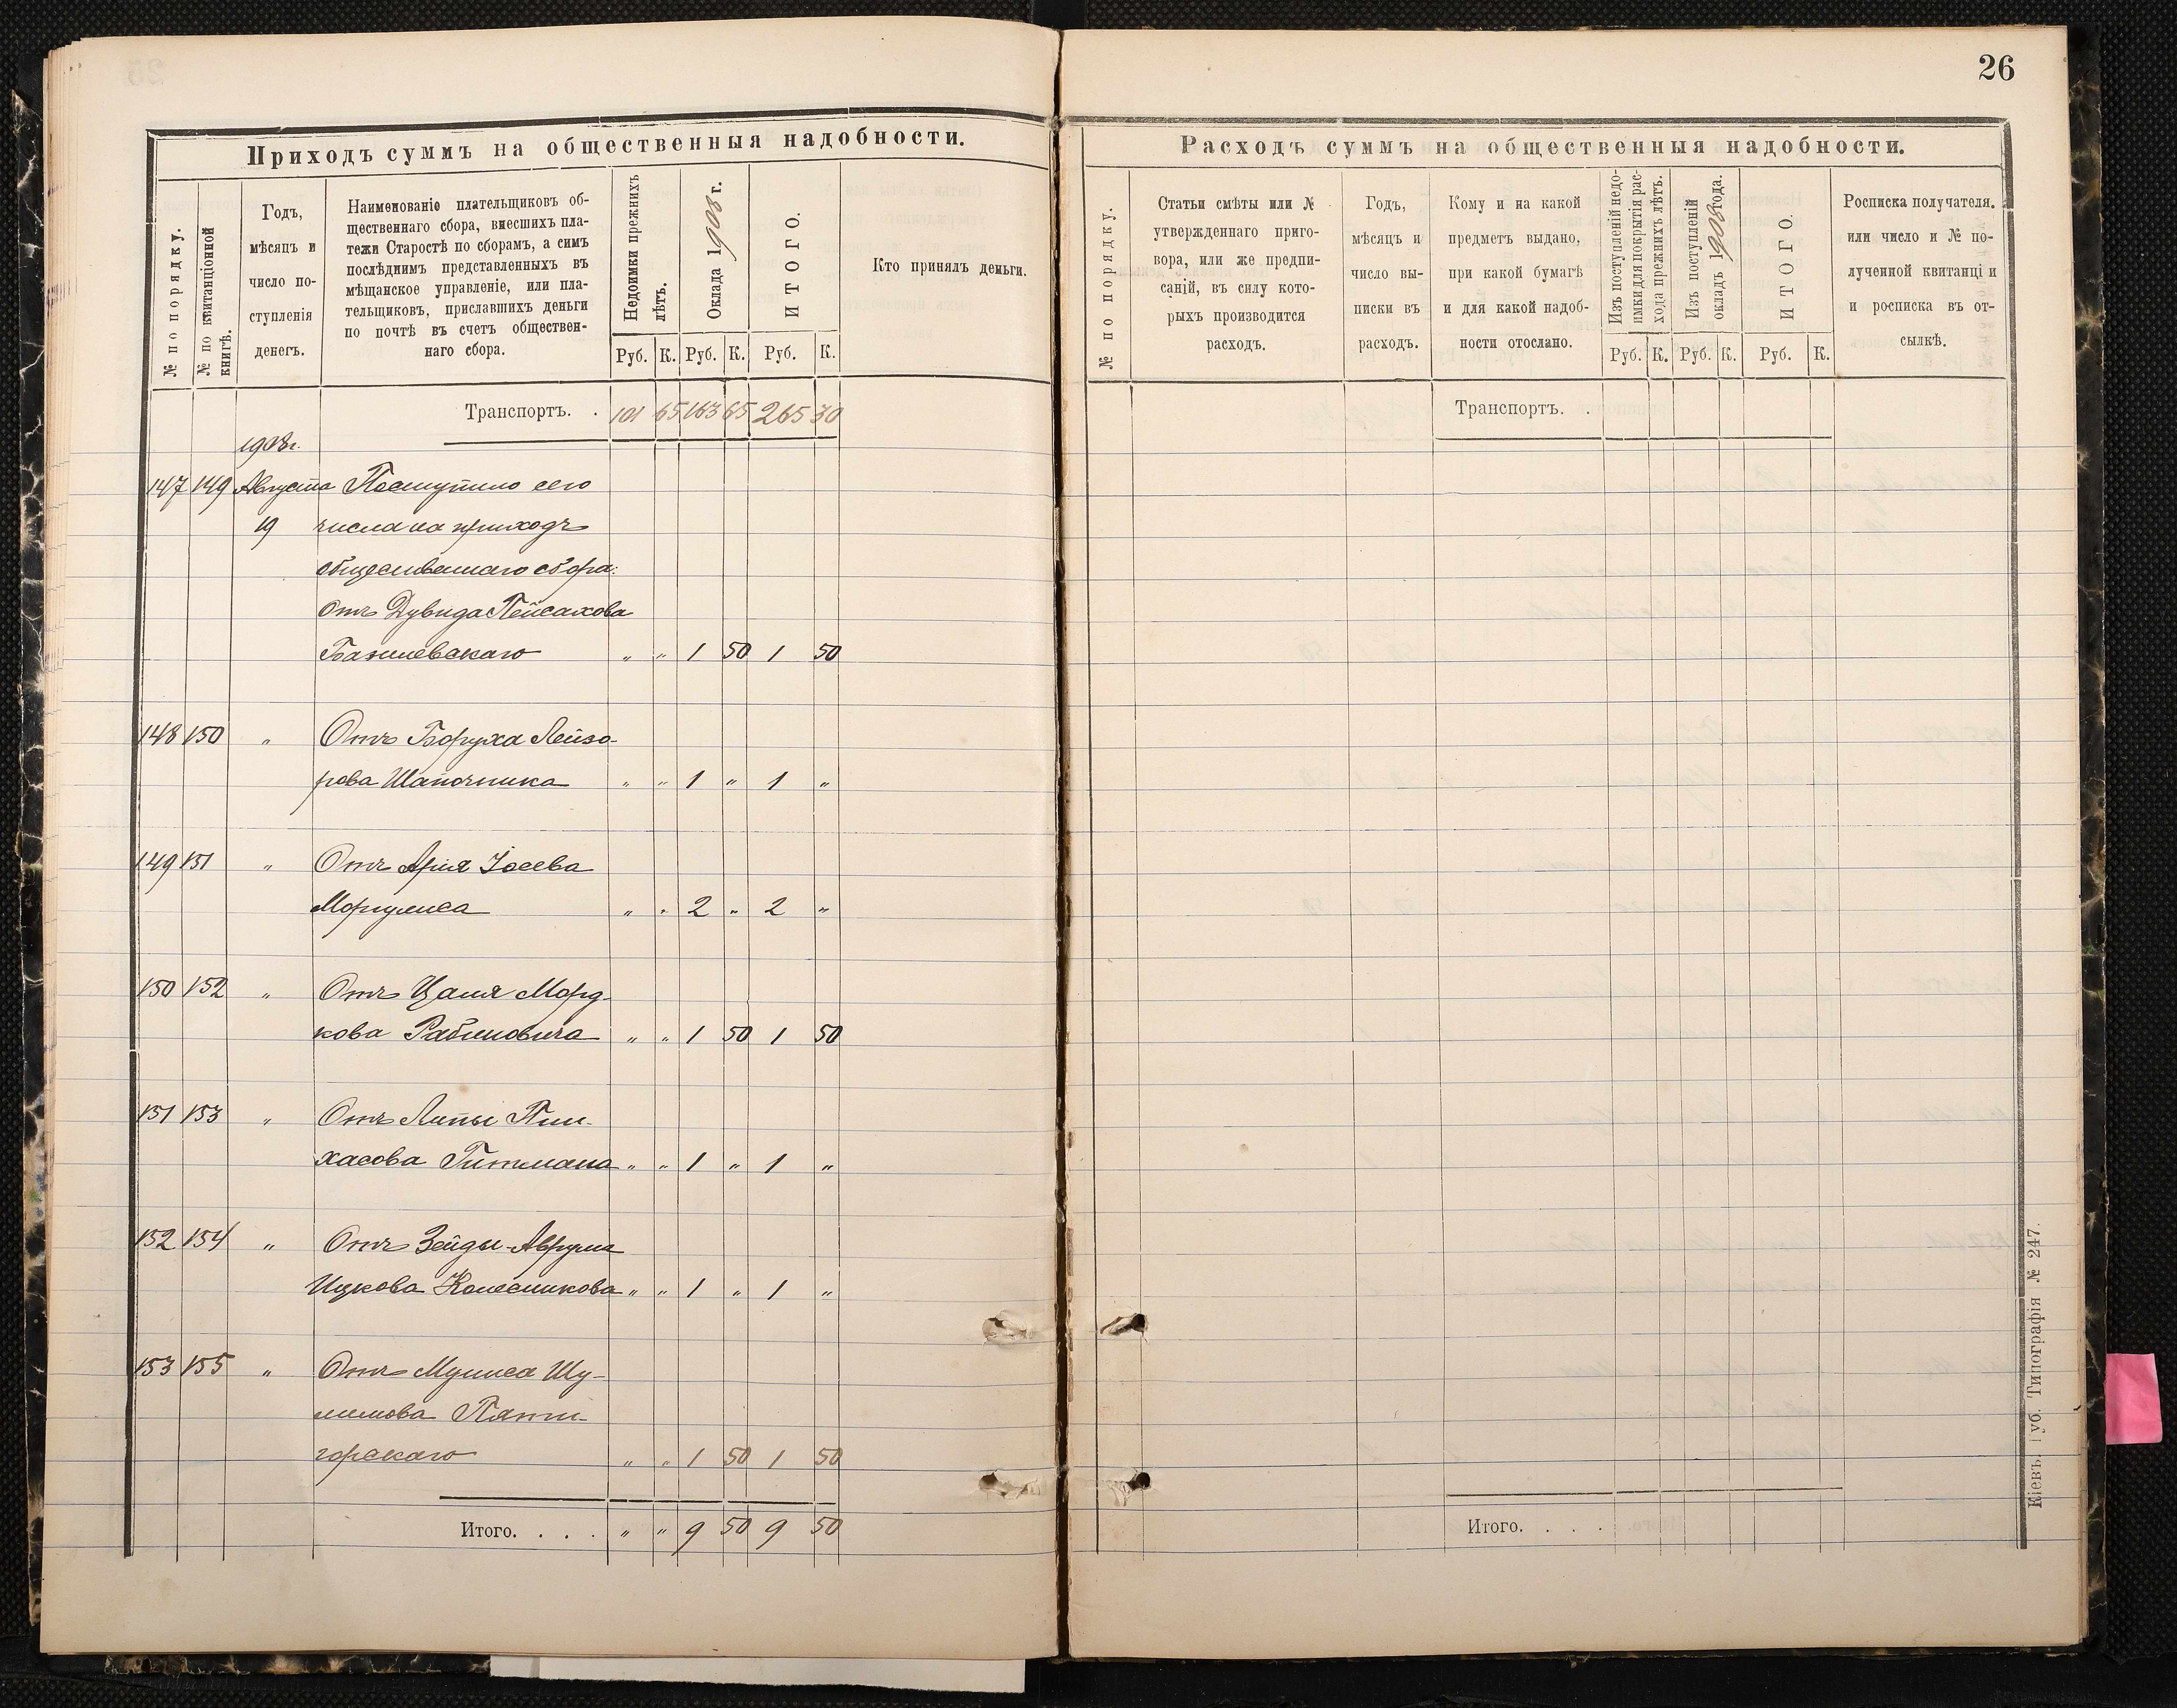 26
Приходъ суммъ на общественныя надобности.
№ по порядку.
№ по квитанціонной
книгѣ.
Годъ,
мѣсяцъ и
число по-
ступленія
денегъ.
Наименованіе плательщиковъ об-
щественнаго сбора, внесшихъ пла-
тежи Старостѣ по сборамъ, а симъ
послѣднимъ представленныхъ въ
мѣщанское управленіе, или пла-
тельщиковъ, приславшихъ деньги
по почтѣ въ счетъ обществен-
наго сбора.
Недоимки прежнихъ
лѣтъ.
Оклада 1908 г.
ИТОГО.
Кто принялъ деньги.
Руб. К. Руб. К. Руб. К.
Транспортъ. . 101 65 163 65 265 30
1908г.
147 149 Августа Поступило сего
19 числа на приходъ
общественнаго сбора:
Отъ Дувида Пейсахова
Базилевскаго " " 1 50 1 50
148 150 " Отъ Боруха Лейзо-
рова Шапочника " " 1 " 1 "
149 151 " Отъ Арія Іосева
Моргулиса " " 2 " 2 "
150 152 " Отъ Цаля Морд-
кова Рабиновича " " 1 50 1 50
151 153 " Отъ Липы Пин-
хасова Гитмана " " 1 " 1 "
152 154 " Отъ Зейды-Аврума
Ицкова Колесникова " " 1 " 1 "
153 155 " Отъ Муниса Шу-
лимова Пяти-
горскаго " " 1 50 1 50
Итого. . . . " " 9 50 9 50
Расходъ суммъ на общественныя надобности.
№ по порядку.
Статьи смѣты или №
утвержденнаго приго-
вора, или же предпи-
саній, въ силу кото-
рыхъ производится
расходъ.
Годъ,
мѣсяцъ и
число вы-
писки въ
расходъ.
Кому и на какой
предметъ выдано,
при какой бумагѣ
и для какой надоб-
ности отослано.
Изъ поступленій недо-
имки для покрытія рас-
хода прежнихъ лѣтъ.
Изъ поступленій
окладъ 1908 года.
ИТОГО.
Росписка получателя.
или число и № по-
лученной квитанціи
и росписка въ от-
сылкѣ.
Руб. К. Руб. К. Руб. К.
Транспортъ. .
Итого. . . .
Кіевъ. Губ. Типографія № 247.